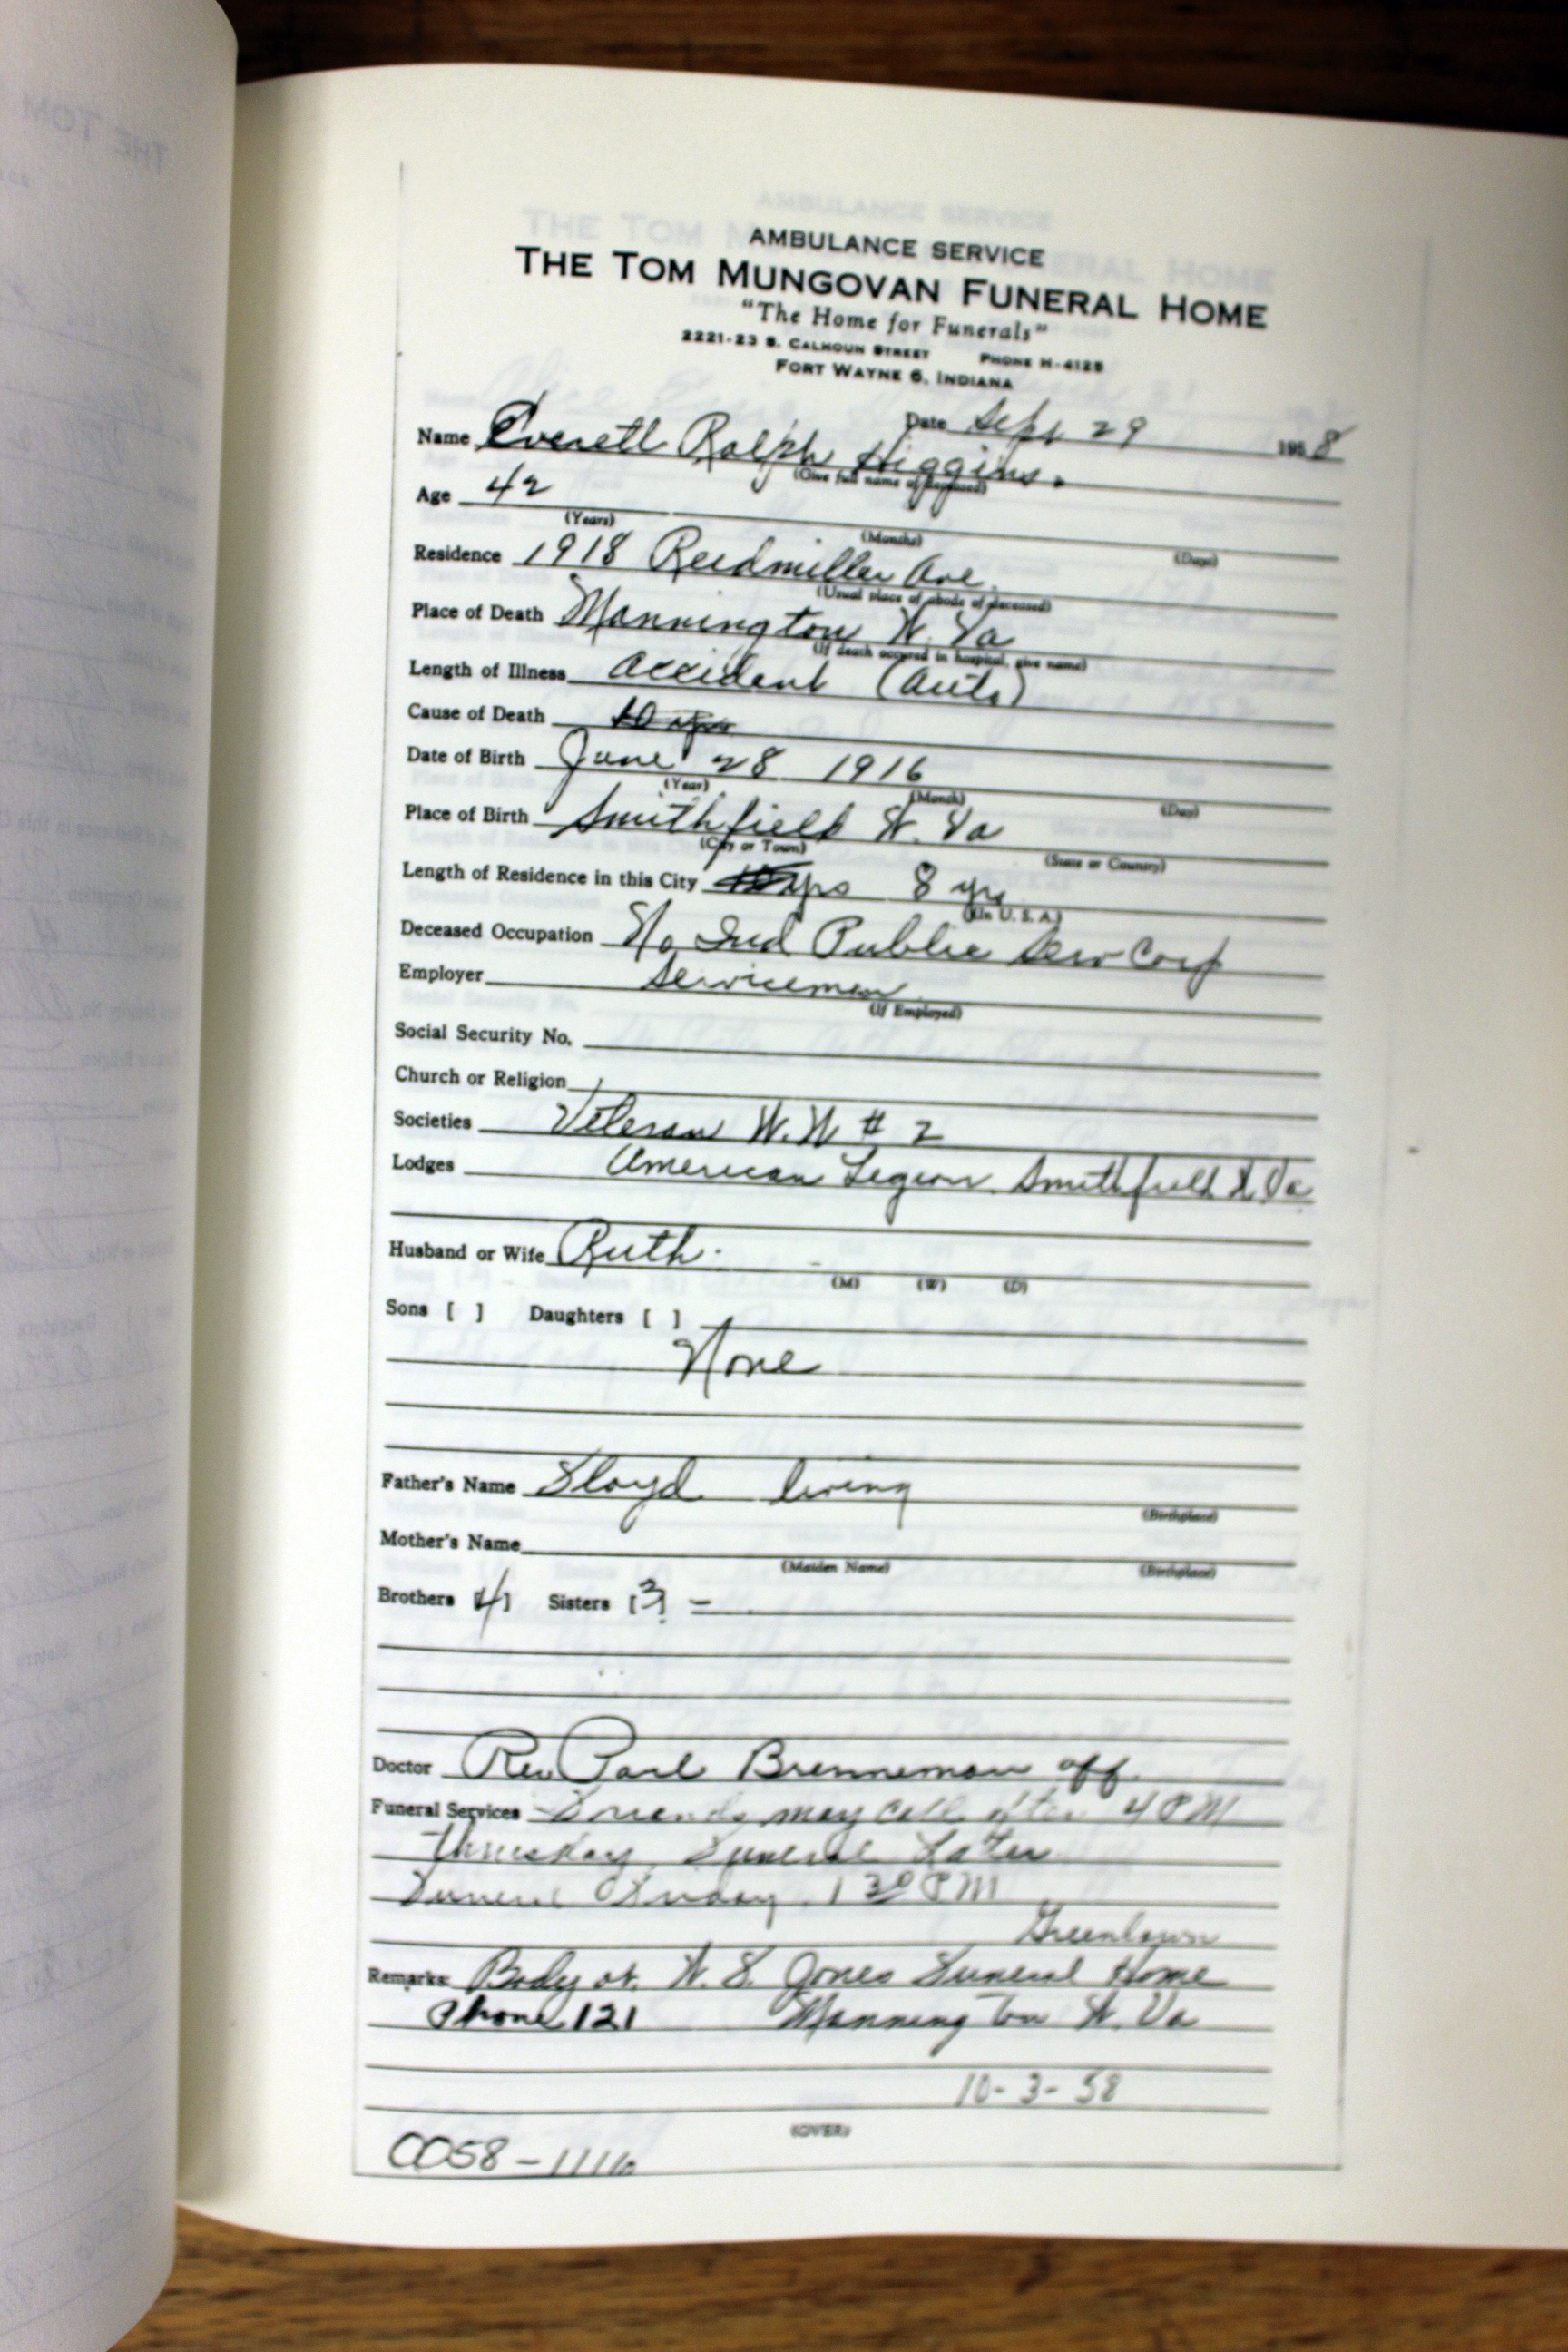 AMBULANCE SERVICE
THE TOM MUNGOVAN FUNERAL HOME
"The Home for Funerals"
2221-23 S. CALHOUN STREET PHONE H-4125
FORT WAYNE 6, INDIANA
Date Sept 29 1958
Name Everett Ralph Higgins.
(Give full name of deceased)
Age 42
(Years) (Months) (Days)
Residence 1918 Reedmiller Ave.
(Usual place of abode of deceased)
Place of Death Mannington W. Va
(If death occured in hospital, give name)
Length of Illness accident (auto)
Cause of Death
Date of Birth June 28 1916
(Year) (Month) (Day)
Place of Birth Smithfield W. Va
(City or Town) (State or Country)
Length of Residence in this City yrs 8 yrs
(In U. S. A.)
Deceased Occupation No Ind Public Serv Corp
Employer Serviceman
(If Employed)
Social Security No.
Church or Religion
Societies Veteran W.W # 2
Lodges American Legion Smithfield W. Va
Husband or Wife Ruth.
(M) (W) (D)
Sons [ ] Daughters [ ]
None
Father's Name living
(Birthplace)
Mother's Name
(Maiden Name) (Birthplace)
Brothers [4] Sisters [3] -
Doctor Rev Paul Brenneman off
Funeral Services Friends may call after 4 PM
Thursday, Funeral Later
Funeral Friday 1 30 PM
Greenlawn
Remarks: Body at. Jones Funeral Home
Phone 121 Mannington W. Va
10-3-58
(OVER)
0058-1116
THE TOM